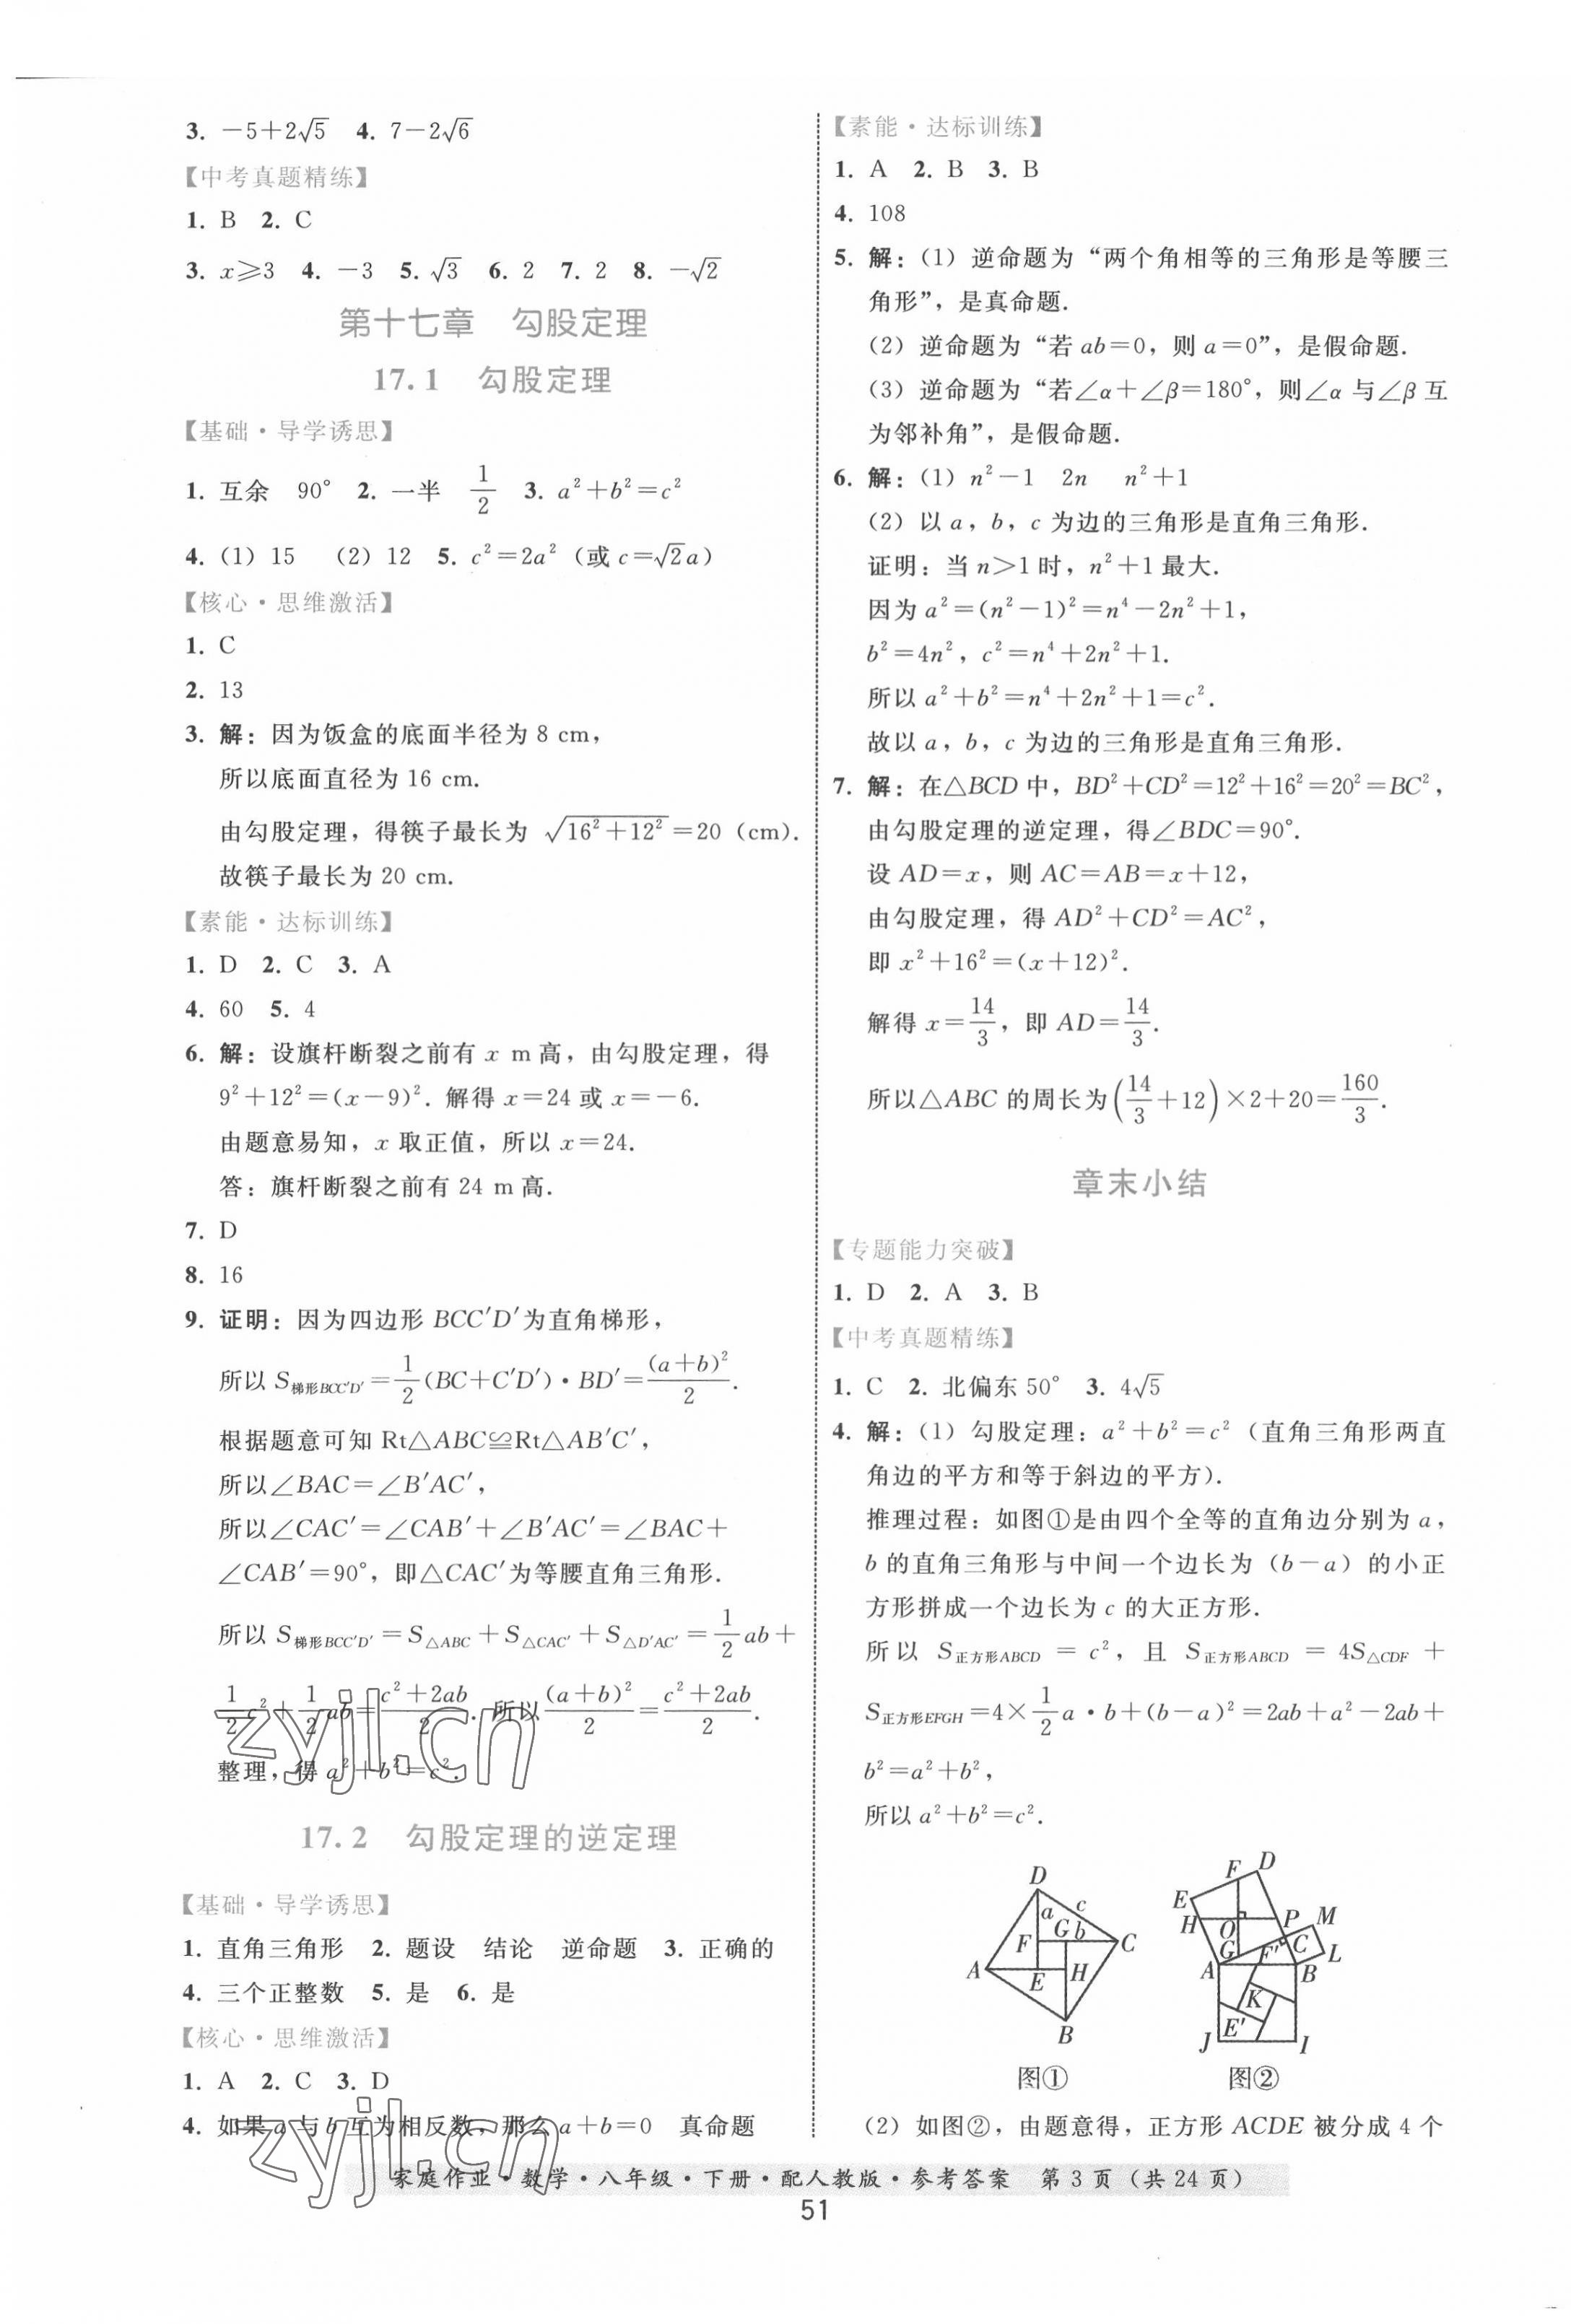 3. －5＋2√5　4. 7－2√6
【中考真题精练】
1. B　2. C
3. x⩾3　4. －3　5. √3　6. 2　7. 2　8. －√2
第十七章　勾股定理
17.1　勾股定理
【基础·导学诱思】
1. 互余　90°　2. 一半　1/2　3. a²＋b²＝c²
4. (1) 15　(2) 12　5. c²＝2a²（或 c＝√2a）
【核心·思维激活】
1. C
2. 13
3. 解：因为饭盒的底面半径为 8 cm，
所以底面直径为 16 cm.
由勾股定理，得筷子最长为 √(16²＋12²)＝20（cm）.
故筷子最长为 20 cm.
【素能·达标训练】
1. D　2. C　3. A
4. 60　5. 4
6. 解：设旗杆断裂之前有 x m 高，由勾股定理，得
9²＋12²＝(x－9)². 解得 x＝24 或 x＝－6.
由题意易知，x 取正值，所以 x＝24.
答：旗杆断裂之前有 24 m 高.
7. D
8. 16
9. 证明：因为四边形 BCC′D′为直角梯形，
所以 S梯形BCC′D′＝1/2(BC＋C′D′)·BD′＝(a＋b)²/2.
根据题意可知 Rt△ABC≌Rt△AB′C′，
所以∠BAC＝∠B′AC′，
所以∠CAC′＝∠CAB′＋∠B′AC′＝∠BAC＋
∠CAB′＝90°，即△CAC′为等腰直角三角形.
所以 S梯形BCC′D′＝S△ABC＋S△CAC′＋S△D′AC′＝1/2ab＋
1/2c²＋1/2ab＝(c²＋2ab)/2. 所以(a＋b)²/2＝(c²＋2ab)/2.
整理，得 a²＋b²＝c².
zyjl.cn
17.2　勾股定理的逆定理
【基础·导学诱思】
1. 直角三角形　2. 题设　结论　逆命题　3. 正确的
4. 三个正整数　5. 是　6. 是
【核心·思维激活】
1. A　2. C　3. D
4. 如果 a 与 b 互为相反数，那么 a＋b＝0　真命题
zyjl.cn
【素能·达标训练】
1. A　2. B　3. B
4. 108
5. 解：(1) 逆命题为“两个角相等的三角形是等腰三
角形”，是真命题.
(2) 逆命题为“若 ab＝0，则 a＝0”，是假命题.
(3) 逆命题为“若∠α＋∠β＝180°，则∠α 与∠β 互
为邻补角”，是假命题.
6. 解：(1) n²－1　2n　n²＋1
(2) 以 a，b，c 为边的三角形是直角三角形.
证明：当 n＞1 时，n²＋1 最大.
因为 a²＝(n²－1)²＝n⁴－2n²＋1，
b²＝4n²，c²＝n⁴＋2n²＋1.
所以 a²＋b²＝n⁴＋2n²＋1＝c².
故以 a，b，c 为边的三角形是直角三角形.
7. 解：在△BCD 中，BD²＋CD²＝12²＋16²＝20²＝BC²，
由勾股定理的逆定理，得∠BDC＝90°.
设 AD＝x，则 AC＝AB＝x＋12，
由勾股定理，得 AD²＋CD²＝AC²，
即 x²＋16²＝(x＋12)².
解得 x＝14/3，即 AD＝14/3.
所以△ABC 的周长为(14/3＋12)×2＋20＝160/3.
章末小结
【专题能力突破】
1. D　2. A　3. B
【中考真题精练】
1. C　2. 北偏东 50°　3. 4√5
4. 解：(1) 勾股定理：a²＋b²＝c²（直角三角形两直
角边的平方和等于斜边的平方）.
推理过程：如图①是由四个全等的直角边分别为 a，
b 的直角三角形与中间一个边长为（b－a）的小正
方形拼成一个边长为 c 的大正方形.
所以 S正方形ABCD＝c²，且 S正方形ABCD＝4S△CDF＋
S正方形EFGH＝4×1/2a·b＋(b－a)²＝2ab＋a²－2ab＋
b²＝a²＋b²，
所以 a²＋b²＝c².
D
a
c
G b
F
C
A
E
H
B
图①
F D
E
H
O
P
M
G
F′
C
L
A
B
K
E′
J
I
图②
(2) 如图②，由题意得，正方形 ACDE 被分成 4 个
家庭作业·数学·八年级·下册·配人教版·参考答案　第 3 页（共 24 页）
51